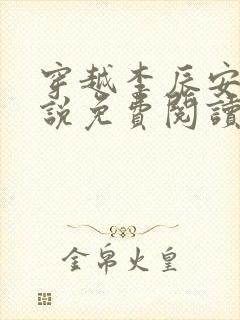 穿越李辰安
說免費閱讀
金帛火皇